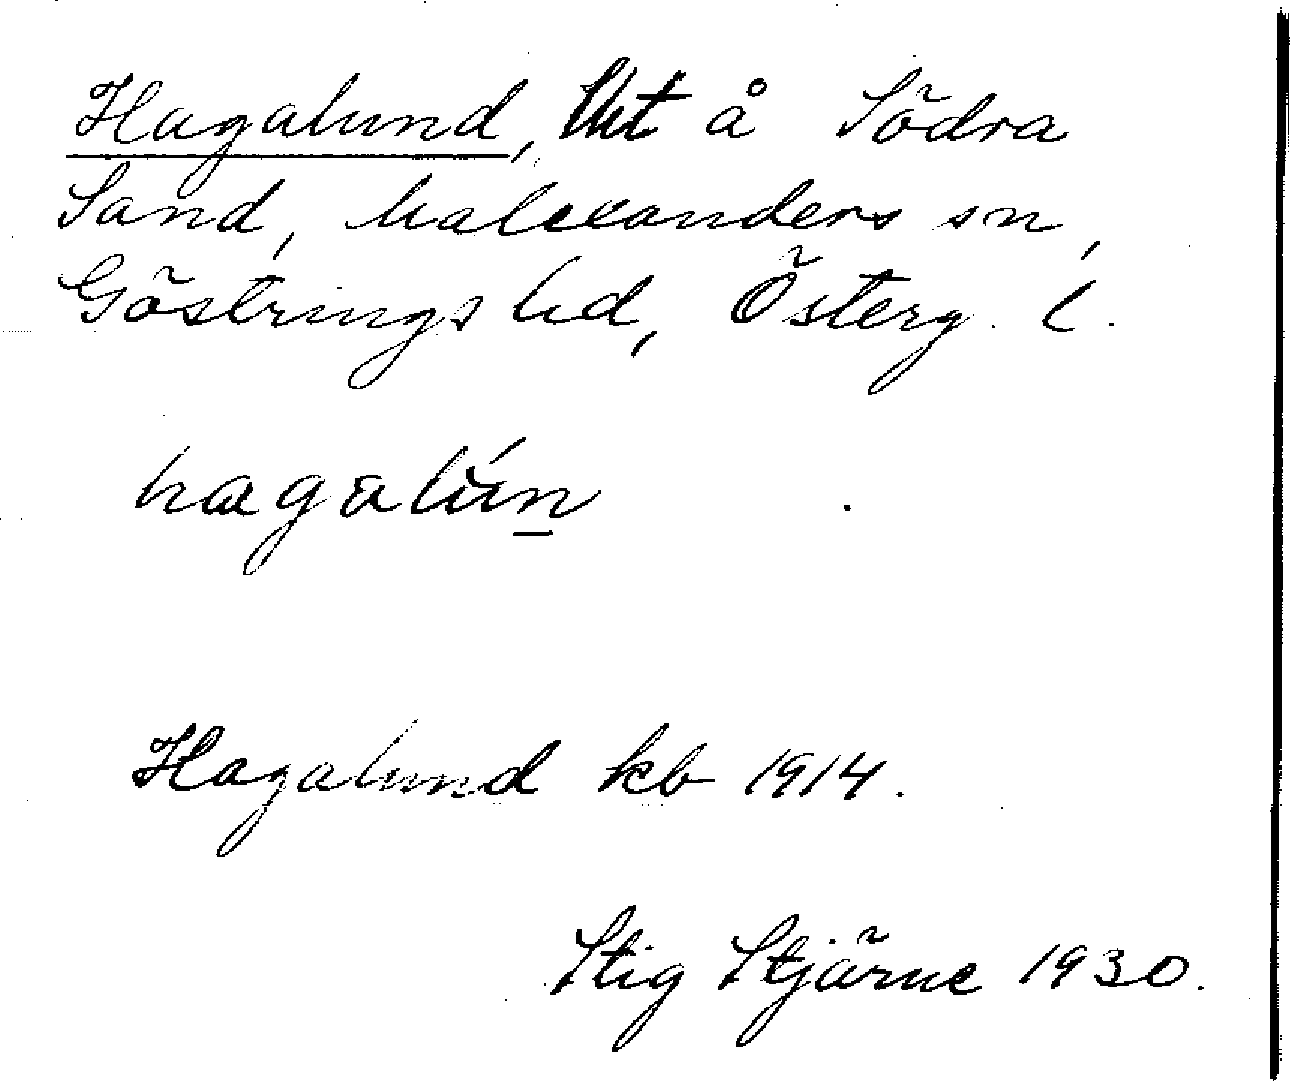 Hagalund, Uht å Södra
Sand, Malexanders sn,
Göstrings hd, Österg. l.
hagalún
Hagalund kb 1914.
Stig Stjärne 1930.